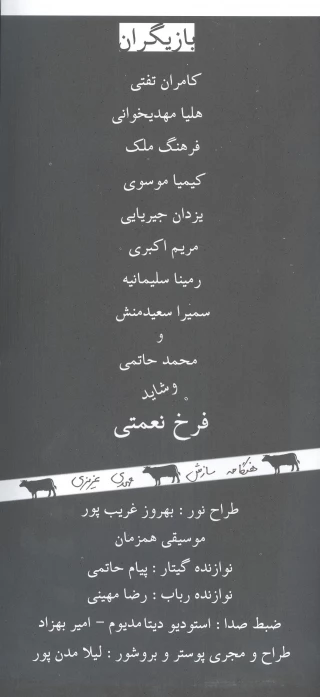 بازیگران
کامران تفتی
هلیا مهدیخوانی
فرهنگ ملک
کیمیا موسوی
یزدان جیریایی
مریم اکبری
رمینا سلیمانیه
سمیرا سعیدمنش
و
محمد حاتمی
و شاید
فرخ نعمتی
هنگامه سازش مهدی عزیزی
طراح نور : بهروز غریب پور
موسیقی همزمان
نوازنده گیتار : پیام حاتمی
نوازنده رباب : رضا مهینی
ضبط صدا : استودیو دیتامدیوم – امیر بهزاد
طراح و مجری پوستر و بروشور : لیلا مدن پور